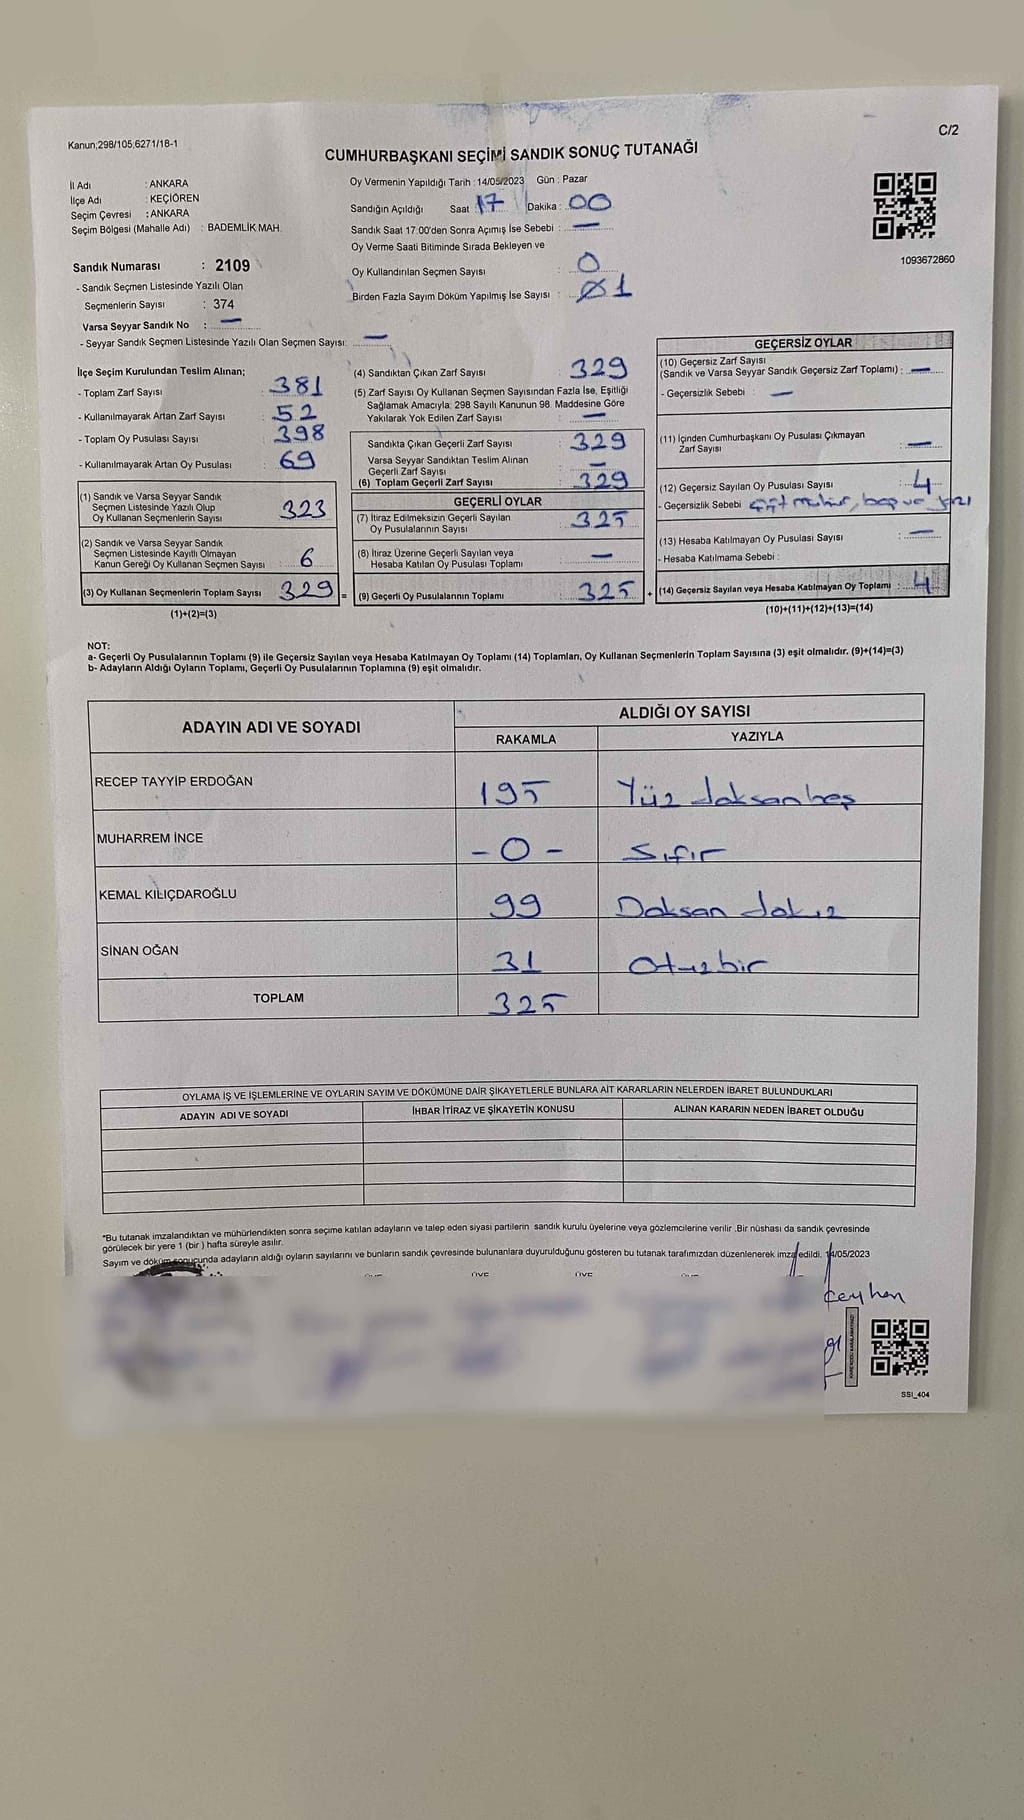 Kanun;298/105,6271/18-1
C/2
CUMHURBAŞKANI SEÇİMİ SANDIK SONUÇ TUTANAĞI
İl Adı : ANKARA
İlçe Adı : KEÇİÖREN
Seçim Çevresi : ANKARA
Seçim Bölgesi (Mahalle Adı) : BADEMLİK MAH.
Sandık Numarası : 2109
- Sandık Seçmen Listesinde Yazılı Olan
Seçmenlerin Sayısı : 374
Varsa Seyyar Sandık No : —
- Seyyar Sandık Seçmen Listesinde Yazılı Olan Seçmen Sayısı: —
Oy Vermenin Yapıldığı Tarih : 14/05/2023 Gün : Pazar
Sandığın Açıldığı Saat : 17 Dakika : 00
Sandık Saat 17:00'den Sonra Açımış İse Sebebi : —
Oy Verme Saati Bitiminde Sırada Bekleyen ve
Oy Kullandırılan Seçmen Sayısı : 0
Birden Fazla Sayım Döküm Yapılmış İse Sayısı : 01
1093672860
İlçe Seçim Kurulundan Teslim Alınan;
- Toplam Zarf Sayısı : 381
- Kullanılmayarak Artan Zarf Sayısı : 52
- Toplam Oy Pusulası Sayısı : 398
- Kullanılmayarak Artan Oy Pusulası : 69
(1) Sandık ve Varsa Seyyar Sandık
Seçmen Listesinde Yazılı Olup
Oy Kullanan Seçmenlerin Sayısı : 323
(2) Sandık ve Varsa Seyyar Sandık
Seçmen Listesinde Kayıtlı Olmayan
Kanun Gereği Oy Kullanan Seçmen Sayısı : 6
(3) Oy Kullanan Seçmenlerin Toplam Sayısı : 329 =
(1)+(2)=(3)
(4) Sandıktan Çıkan Zarf Sayısı : 329
(5) Zarf Sayısı Oy Kullanan Seçmen Sayısından Fazla İse, Eşitliği
Sağlamak Amacıyla; 298 Sayılı Kanunun 98. Maddesine Göre
Yakılarak Yok Edilen Zarf Sayısı : —
Sandıkta Çıkan Geçerli Zarf Sayısı : 329
Varsa Seyyar Sandıktan Teslim Alınan
Geçerli Zarf Sayısı : —
(6) Toplam Geçerli Zarf Sayısı : 329
GEÇERLİ OYLAR
(7) İtiraz Edilmeksizin Geçerli Sayılan
Oy Pusulalarının Sayısı : 325
(8) İtiraz Üzerine Geçerli Sayılan veya
Hesaba Katılan Oy Pusulası Toplamı : —
(9) Geçerli Oy Pusulalarının Toplamı : 325 +
GEÇERSİZ OYLAR
(10) Geçersiz Zarf Sayısı
(Sandık ve Varsa Seyyar Sandık Geçersiz Zarf Toplamı) : —
- Geçersizlik Sebebi : —
(11) İçinden Cumhurbaşkanı Oy Pusulası Çıkmayan
Zarf Sayısı : —
(12) Geçersiz Sayılan Oy Pusulası Sayısı : 4
- Geçersizlik Sebebi çift mühür, boş ve yazı
(13) Hesaba Katılmayan Oy Pusulası Sayısı : —
- Hesaba Katılmama Sebebi :
(14) Geçersiz Sayılan veya Hesaba Katılmayan Oy Toplamı : 4
(10)+(11)+(12)+(13)=(14)
NOT:
a- Geçerli Oy Pusulalarının Toplamı (9) ile Geçersiz Sayılan veya Hesaba Katılmayan Oy Toplamı (14) Toplamları, Oy Kullanan Seçmenlerin Toplam Sayısına (3) eşit olmalıdır. (9)+(14)=(3)
b- Adayların Aldığı Oyların Toplamı, Geçerli Oy Pusulalarının Toplamına (9) eşit olmalıdır.
ADAYIN ADI VE SOYADI ALDIĞI OY SAYISI
RAKAMLA YAZIYLA
RECEP TAYYİP ERDOĞAN 195 Yüz doksanbeş
MUHARREM İNCE - 0 - Sıfır
KEMAL KILIÇDAROĞLU 99 Doksan dokuz
SİNAN OĞAN 31 Otuzbir
TOPLAM 325
OYLAMA İŞ VE İŞLEMLERİNE VE OYLARIN SAYIM VE DÖKÜMÜNE DAİR ŞİKAYETLERLE BUNLARA AİT KARARLARIN NELERDEN İBARET BULUNDUKLARI
ADAYIN ADI VE SOYADI İHBAR İTİRAZ VE ŞİKAYETİN KONUSU ALINAN KARARIN NEDEN İBARET OLDUĞU
*Bu tutanak imzalandıktan ve mühürlendikten sonra seçime katılan adayların ve talep eden siyasi partilerin sandık kurulu üyelerine veya gözlemcilerine verilir .Bir nüshası da sandık çevresinde
görülecek bir yere 1 (bir ) hafta süreyle asılır.
Sayım ve döküm sonucunda adayların aldığı oyların sayılarını ve bunların sandık çevresinde bulunanlara duyurulduğunu gösteren bu tutanak tarafımızdan düzenlenerek imza edildi. 14/05/2023
ÜYE ÜYE
Ceyhan
SSI_404